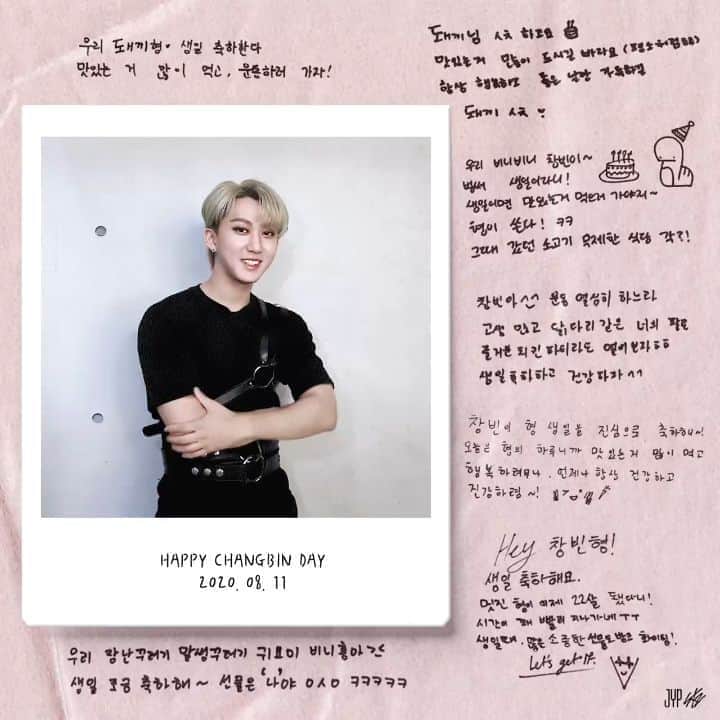 우리 돼끼형 생일 축하한다
맛있는 거 많이 먹고, 운동하러 가자!
돼끼님 ㅅㅊ 하고요
맛있는거 많이 드시길 바라요
항상 행복하고 좋은 날만 가득하길
돼끼 ㅅㅊ ♡
우리 비니비니 창빈이~
벌써 생일이라니!
생일이면 맛있는거 먹으러 가야지~
형이 쏜다! ㅋㅋ
그때 갔던 소고기 무제한 식당 각?!
창빈아^^ 운동 열심히 하느라
고생 많고 닭다리같은 너의 팔로
즐거운 치킨 파티라도 열어보라ㅎㅎ
생일 축하하고 건강하자^^
창빈이 형 생일을 진심으로 축하해~!
오늘은 형의 하루니까 맛있는거 많이 먹고
행복하려무나. 언제나 항상 건강하고
건강하렴~!
Hey 창빈형!
생일 축하해요.
멋진 형이 이제 22살 됐다니!
시간이 꽤 빨리 지나가네ㅜㅜ
생일때, 많은 소중한 선물도 받고 화이팅!
Let's get IT.
HAPPY CHANGBIN DAY
2020. 08. 11
우리 장난꾸러기 말썽꾸러기 귀요미 비니흥아
생일 조금 축하해~ 선물은 '나'야 ㅇㅅㅇ ㅋㅋㅋㅋㅋ
JYP